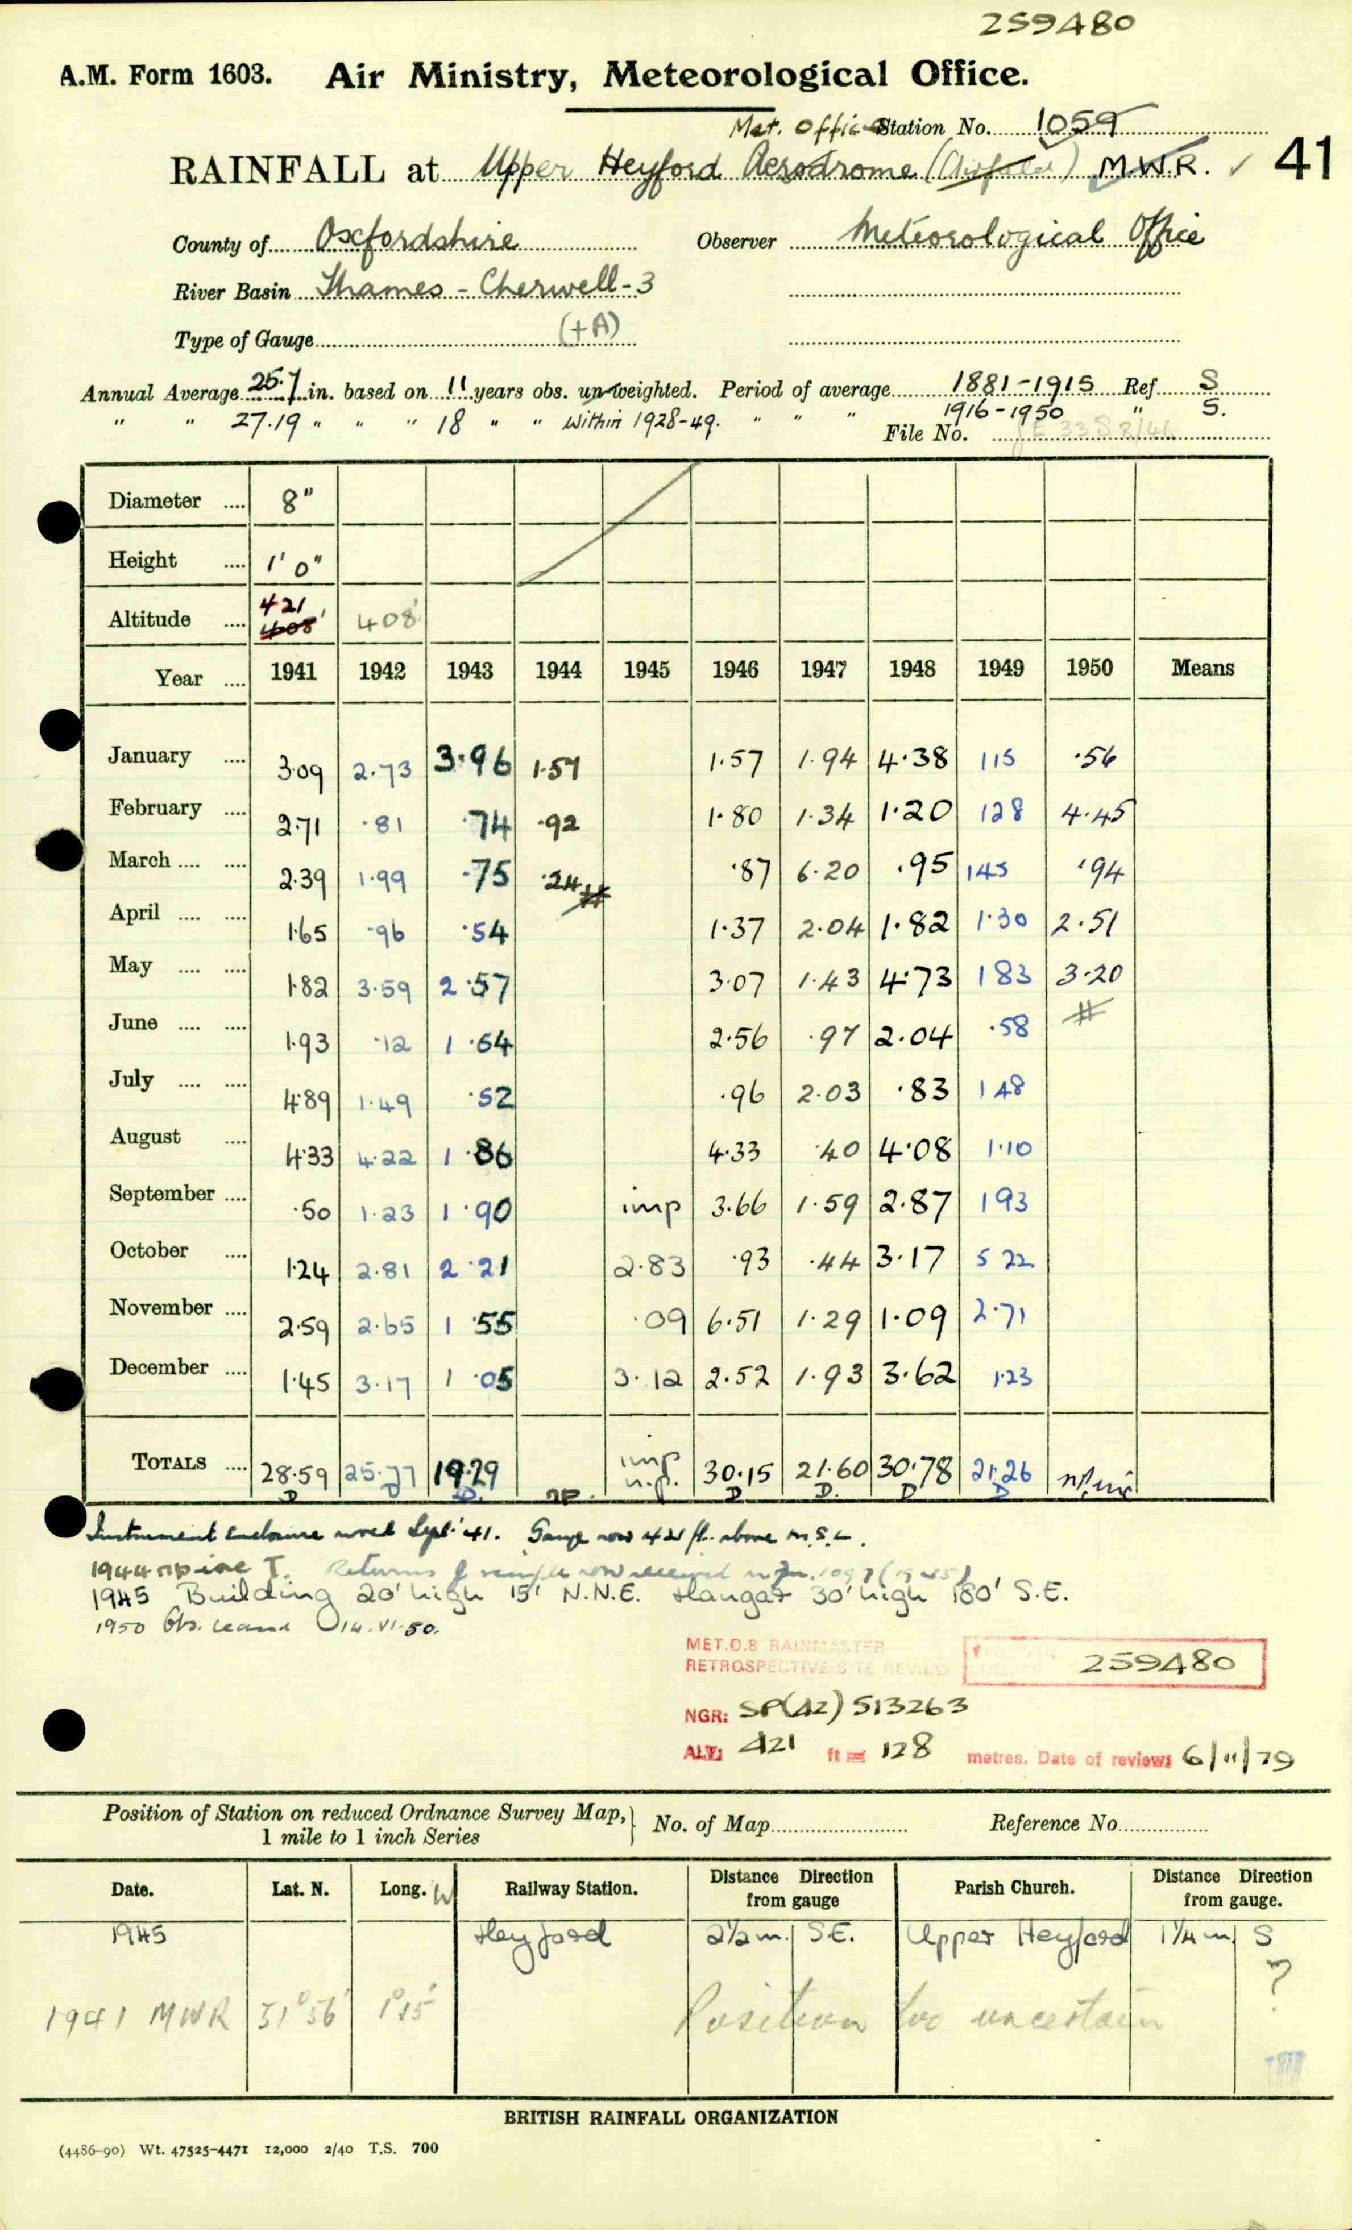 259480
A.M. Form 1603. Air Ministry, Meteorological Office.
Met. Office Station No. 1059
RAINFALL at Upper Heyford Aerodrome (Airfield) M.W.R. ✓ 41
County of Oxfordshire Observer Meteorological Office
River Basin Thames - Cherwell - 3
Type of Gauge (+A)
Annual Average 25.7 in. based on 11 years obs. un-weighted. Period of average 1881-1915 Ref S
" " 27.19 " " " 18 " " within 1928-49. " " " 1916-1950 " S.
File No.
Diameter .... 8"
Height .... 1' 0"
421
Altitude .... 408' 408'
Year .... 1941 1942 1943 1944 1945 1946 1947 1948 1949 1950 Means
January .... 3.09 2.73 3.96 1.57 1.57 1.94 4.38 115 .56
February .... 2.71 .81 .74 .92 1.80 1.34 1.20 128 4.45
March .... .... 2.39 1.99 .75 .24 # .87 6.20 .95 145 .94
April .... .... 1.65 .96 .54 1.37 2.04 1.82 1.30 2.51
May .... .... 1.82 3.59 2.57 3.07 1.43 4.73 183 3.20
June .... .... 1.93 .12 1.64 2.56 .97 2.04 .58 #
July .... .... 4.89 1.49 .52 .96 2.03 .83 148
August .... 4.33 4.22 1.86 4.33 .40 4.08 1.10
September .... .50 1.23 1.90 imp 3.66 1.59 2.87 193
October .... 1.24 2.81 2.21 2.83 .93 .44 3.17 5 22
November .... 2.59 2.65 1.55 .09 6.51 1.29 1.09 2.71
December .... 1.45 3.17 1.05 3.12 2.52 1.93 3.62 1.23
TOTALS .... 28.59 25.77 19.29 imp 30.15 21.60 30.78 21.26
D D D. np. n.p. D D. D D
Instrument Enclosure moved Sept '41. Gauge now 421 ft. above M.S.L.
1944 Returns
1945 Building 20' high 15' N.N.E. Hangar 30' high 180' S.E.
1950 Obs. ceased 14.VI.50.
MET.O.8 RAINMASTER
RETROSPECTIVE SITE REVIEW 259480
NGR: SP(42) 513263
ALT: 421 ft = 128 metres. Date of review: 6/11/79
Position of Station on reduced Ordnance Survey Map, 1 mile to 1 inch Series No. of Map Reference No.
Date. Lat. N. Long. W Railway Station. Distance Direction from gauge Parish Church. Distance Direction from gauge.
1945 Heyford 2½ m. S.E. Upper Heyford 1¼ m S
?
1941 MWR 51° 56' 1° 15' Position too uncertain
BRITISH RAINFALL ORGANIZATION
(4486-90) Wt. 47525-4471 12,000 2/40 T.S. 700